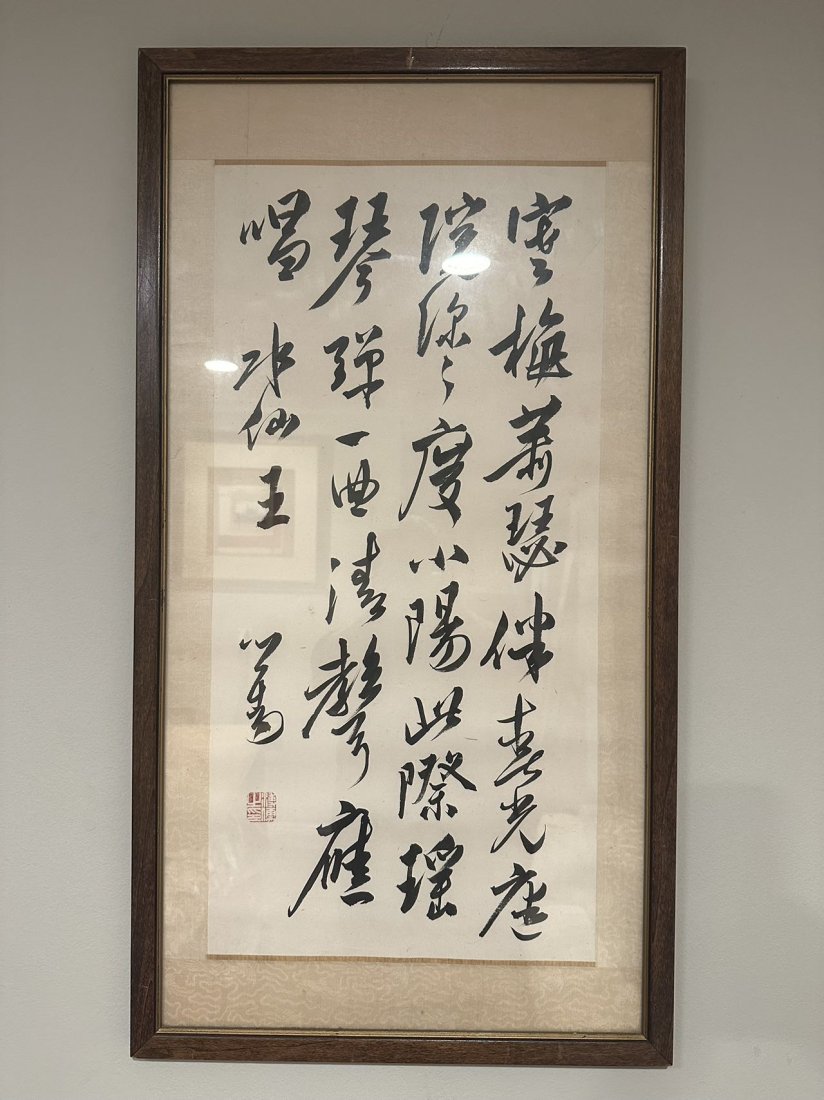 寒梅蕭瑟伴春光庭
院深々度小陽此際瑤
琴彈一曲清聲應
唱水仙王 心畬